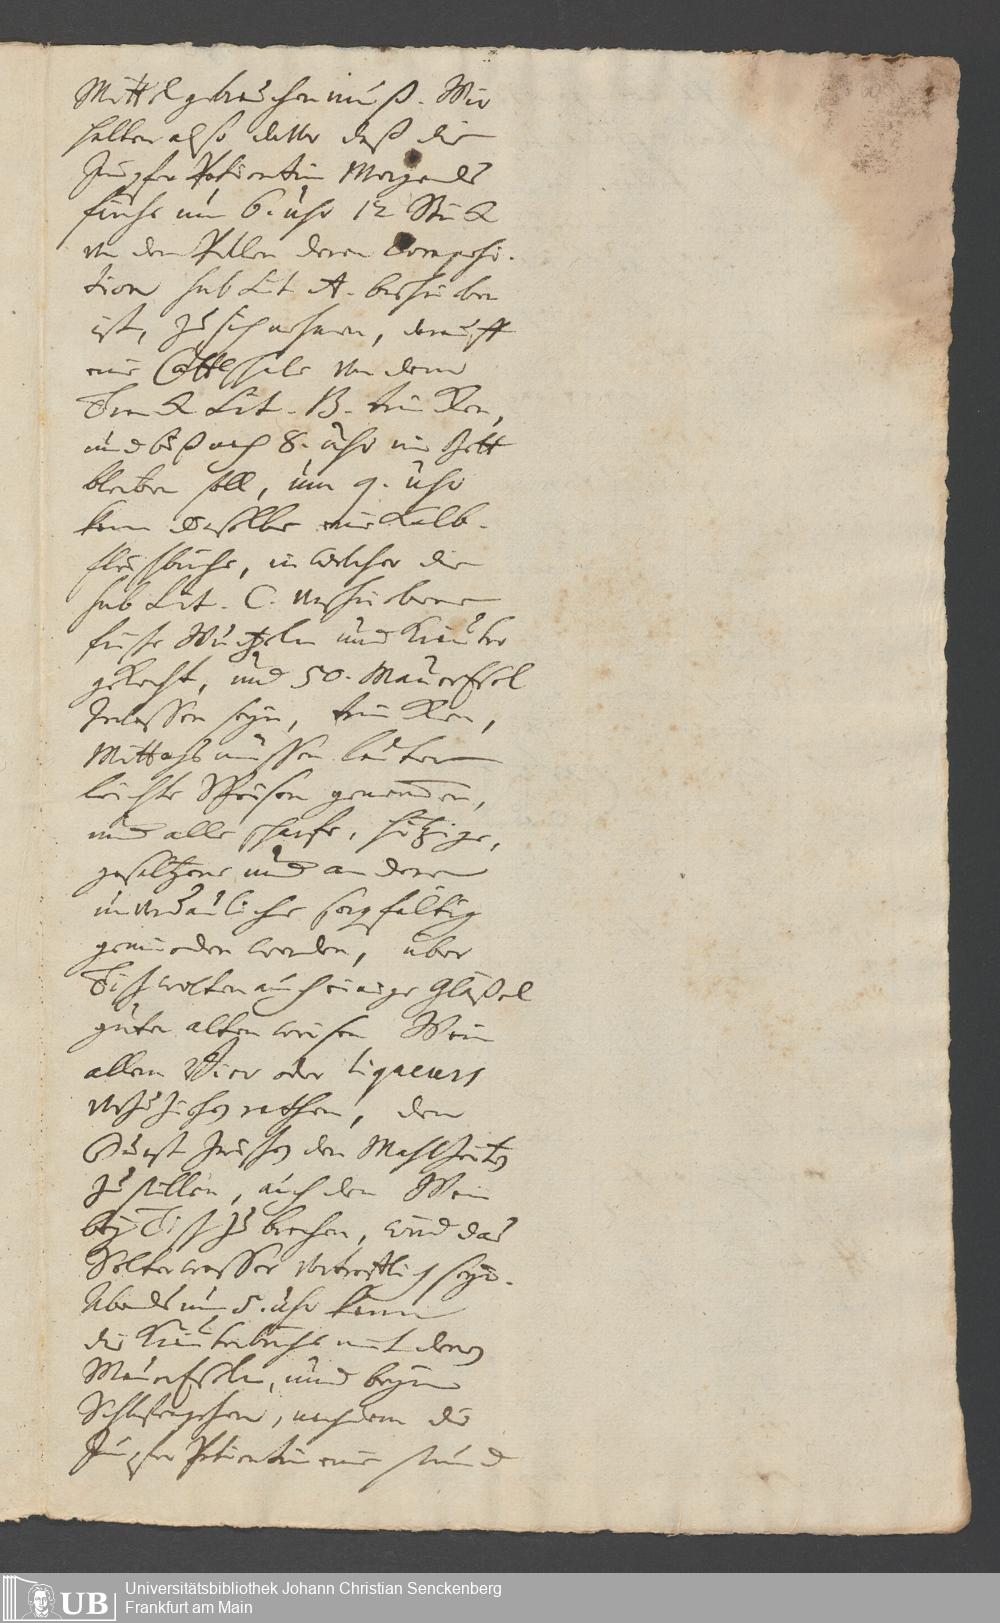 Mittel gebrauchen muß. Wir
halten also davor daß die
Jungfer Patientin Morgends
frühe um 6. Uhr 12 Stück
von den Pillen deren Composi-
tion sub Lit. A. beschrieben
ist, zu sich nehmen, darauff
eine Cöffeschale von dem
Tranck Lit. B. trincken,
und biß nach 8. Uhr im Bett
bleiben soll, um 9. Uhr
kann dieselbe eine Kalb-
fleischbrühe, in welcher die
sub Lit. C. verschriebene
frische Wurtzeln und Kräuter
gekocht, und 50. Mauer Esel
zerlassen seyn, trincken,
Mittags müssen lauter
leichte Speisen genommen,
und alle scharfe, hitzige,
gesaltzene und andere
unverdauliche sorgfältig
gemieden werden, über
Tisch wolten auch einige Gläsel
guten alten weisen Wein
allem Bier oder liqueurs
vorzuziehen rathen, den
Durst zwischen den Mahlzeiten
zu stillen, auch den Wein
bey Tisch zu brechen, wird das
Selterwasser vortrefflich seyn.
Abends um 5. Uhr kann
die Kräuterbrühe mit denen
Mauer Eseln, und beym
Schlafengehen, nachdem die
Jungfer Patientin eine stund
Universitätsbibliothek Johann Christian Senckenberg
UB Frankfurt am Main